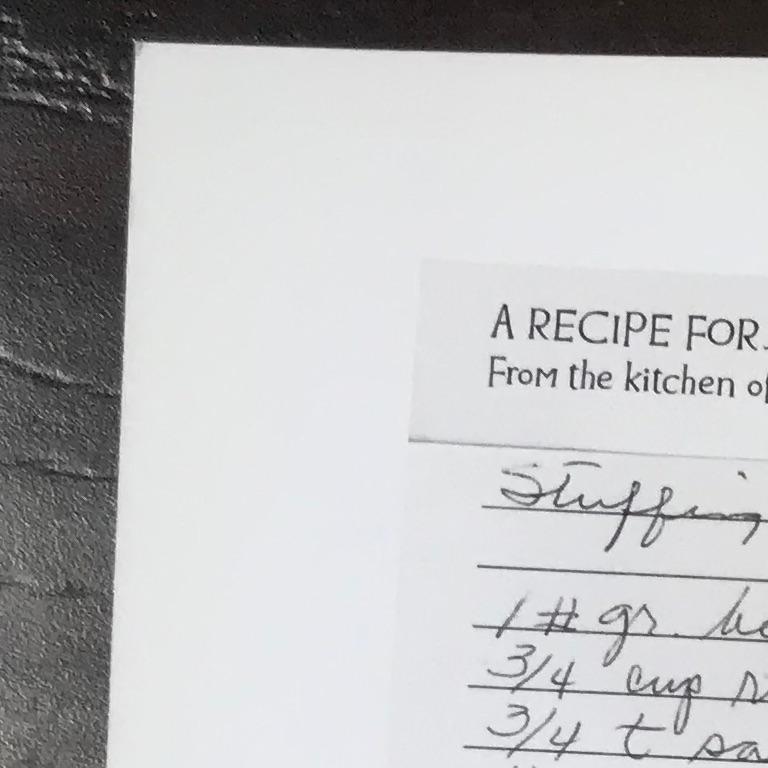 A RECIPE FOR
From the kitchen of
Stuffing
1 # gr.
3/4 cup
3/4 t